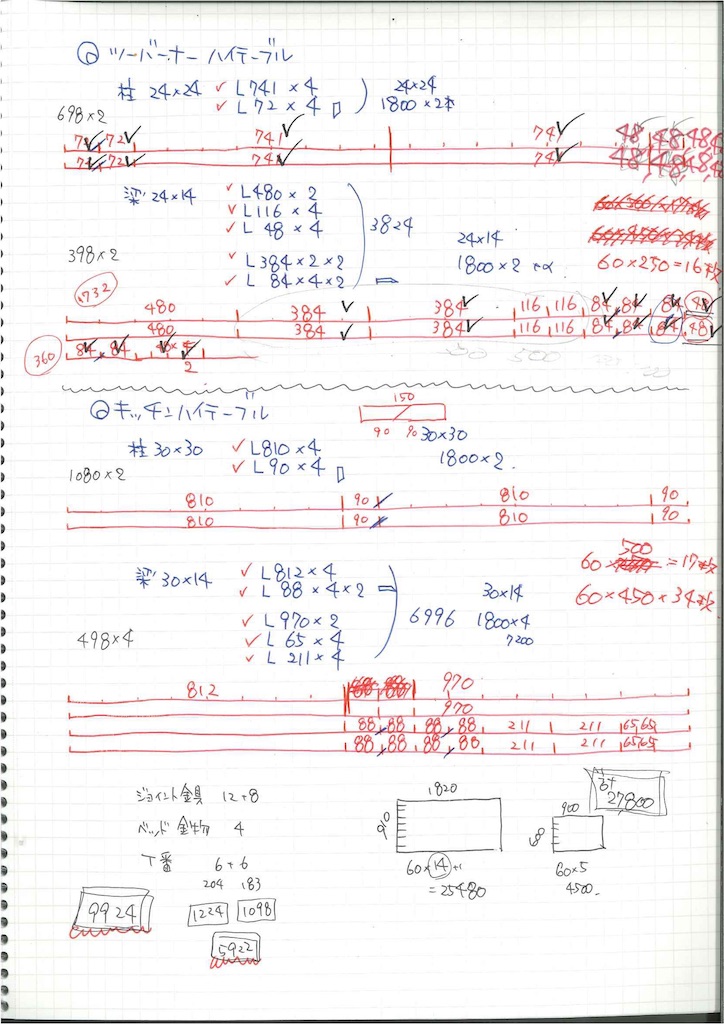 ◎ ツーバーナー ハイテーブル
柱 24×24 ✓ L741 × 4
✓ L72 × 4
24×24
1800 × 2本
698×2
72 72 741 741 48 48 48
72 72 741 741 48 48 48
梁 24×14 ✓ L480 × 2
✓ L116 × 4
✓ L 48 × 4
✓ L384 × 2 × 2
✓ L 84 × 4 × 2
3824
24×14
1800 × 2 +α
60×250=16枚
398×2
1732
480 384 384 116 116 84 84 84 48
480 384 384 116 116 84 84 84 48
360
84 84
2
◎ キッチンハイテーブル
150
90 90
柱 30×30 ✓ L810 × 4
✓ L90 × 4
30×30
1800 × 2.
1080×2
810 90 810 90
810 90 810 90
500
60 =17枚
60×450×34枚
梁 30×14 ✓ L812 × 4
✓ L 88 × 4 × 2
✓ L970 × 2
✓ L 65 × 4
✓ L 211 × 4
6996
30×14
1800×4
7200
498×4
812 88 88 970
970
88 88 88 88 211 211 65 65
88 88 88 88 211 211 65 65
ジョイント金具 12+8
ベッド金物 4
丁番 6+6
204 183
1224 1098
9924
5922
1820
910
60×14+1
=25480
900
60×5
4500.
27,800